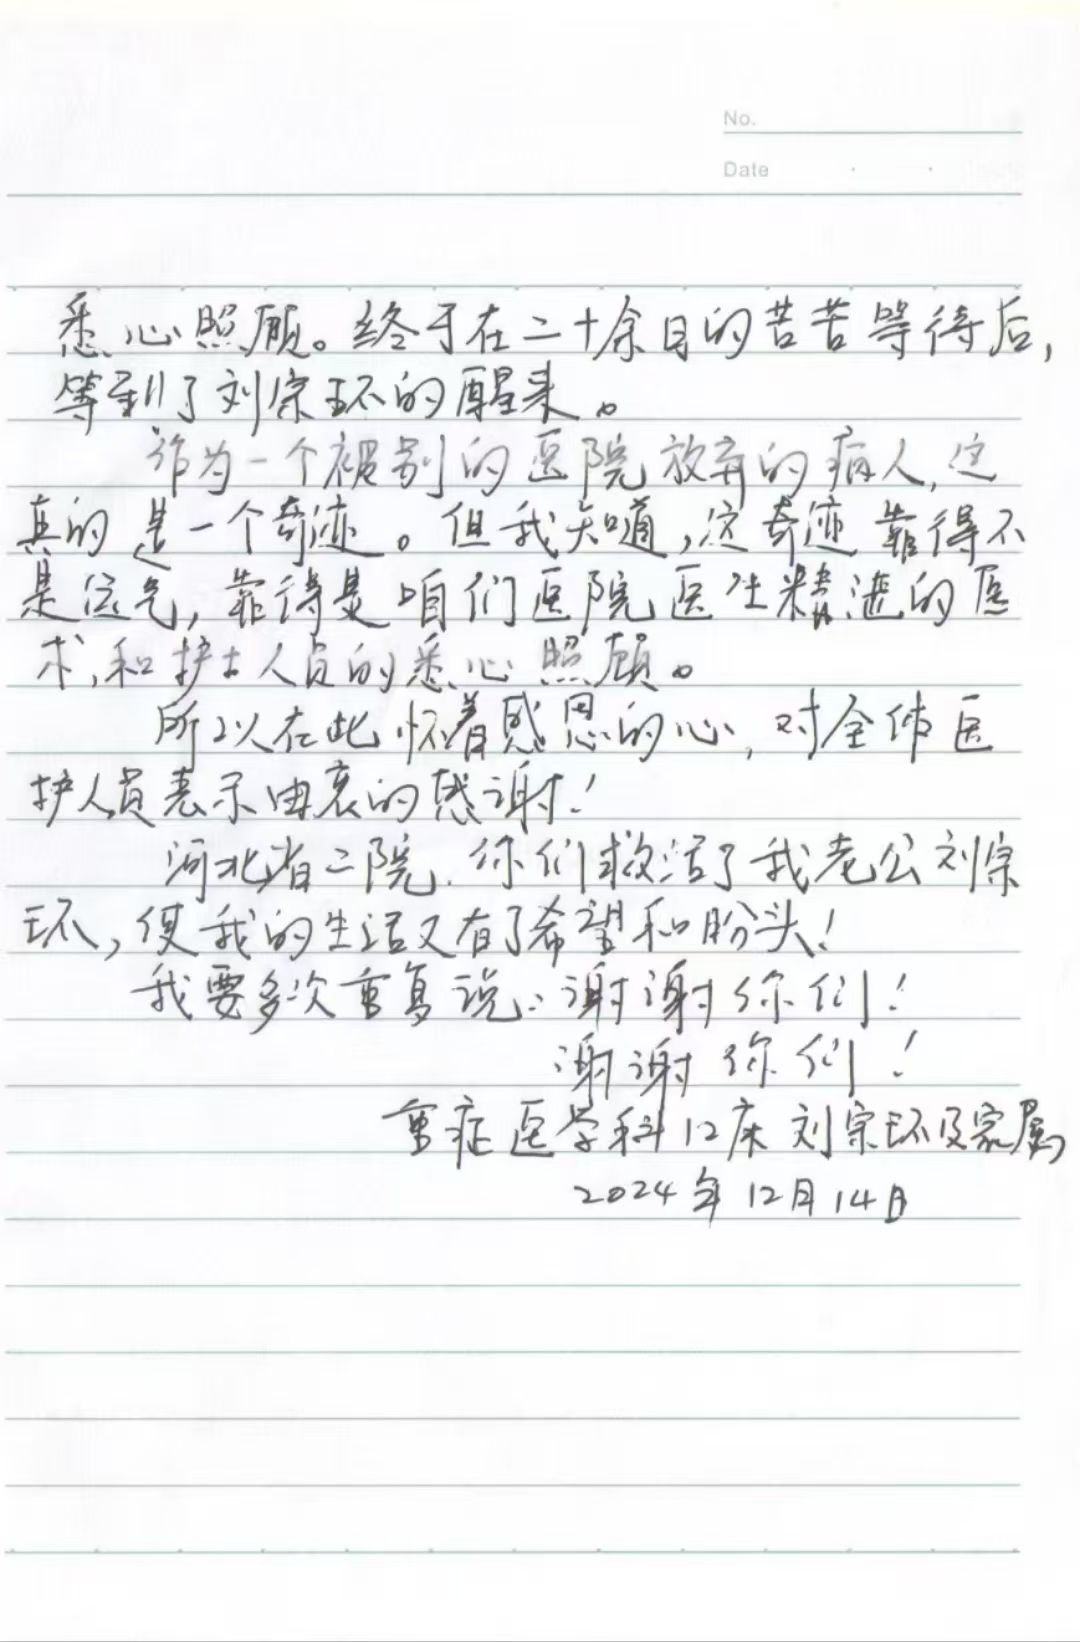 No.
Date
悉心照顾。终于在二十余日的苦苦等待后,
等到了刘宗环的醒来。
作为一个被别的医院放弃的病人,这
真的是一个奇迹。但我知道,这奇迹靠得不
是运气,靠得是咱们医院医生精进的医
术,和护士人员的悉心照顾。
所以在此怀着感恩的心,对全体医
护人员表示由衷的感谢!
河北省二院,你们救活了我老公刘宗
环,使我的生活又有了希望和盼头!
我要多次重复说:谢谢你们!
谢谢你们!
重症医学科12床刘宗环及家属
2024年12月14日